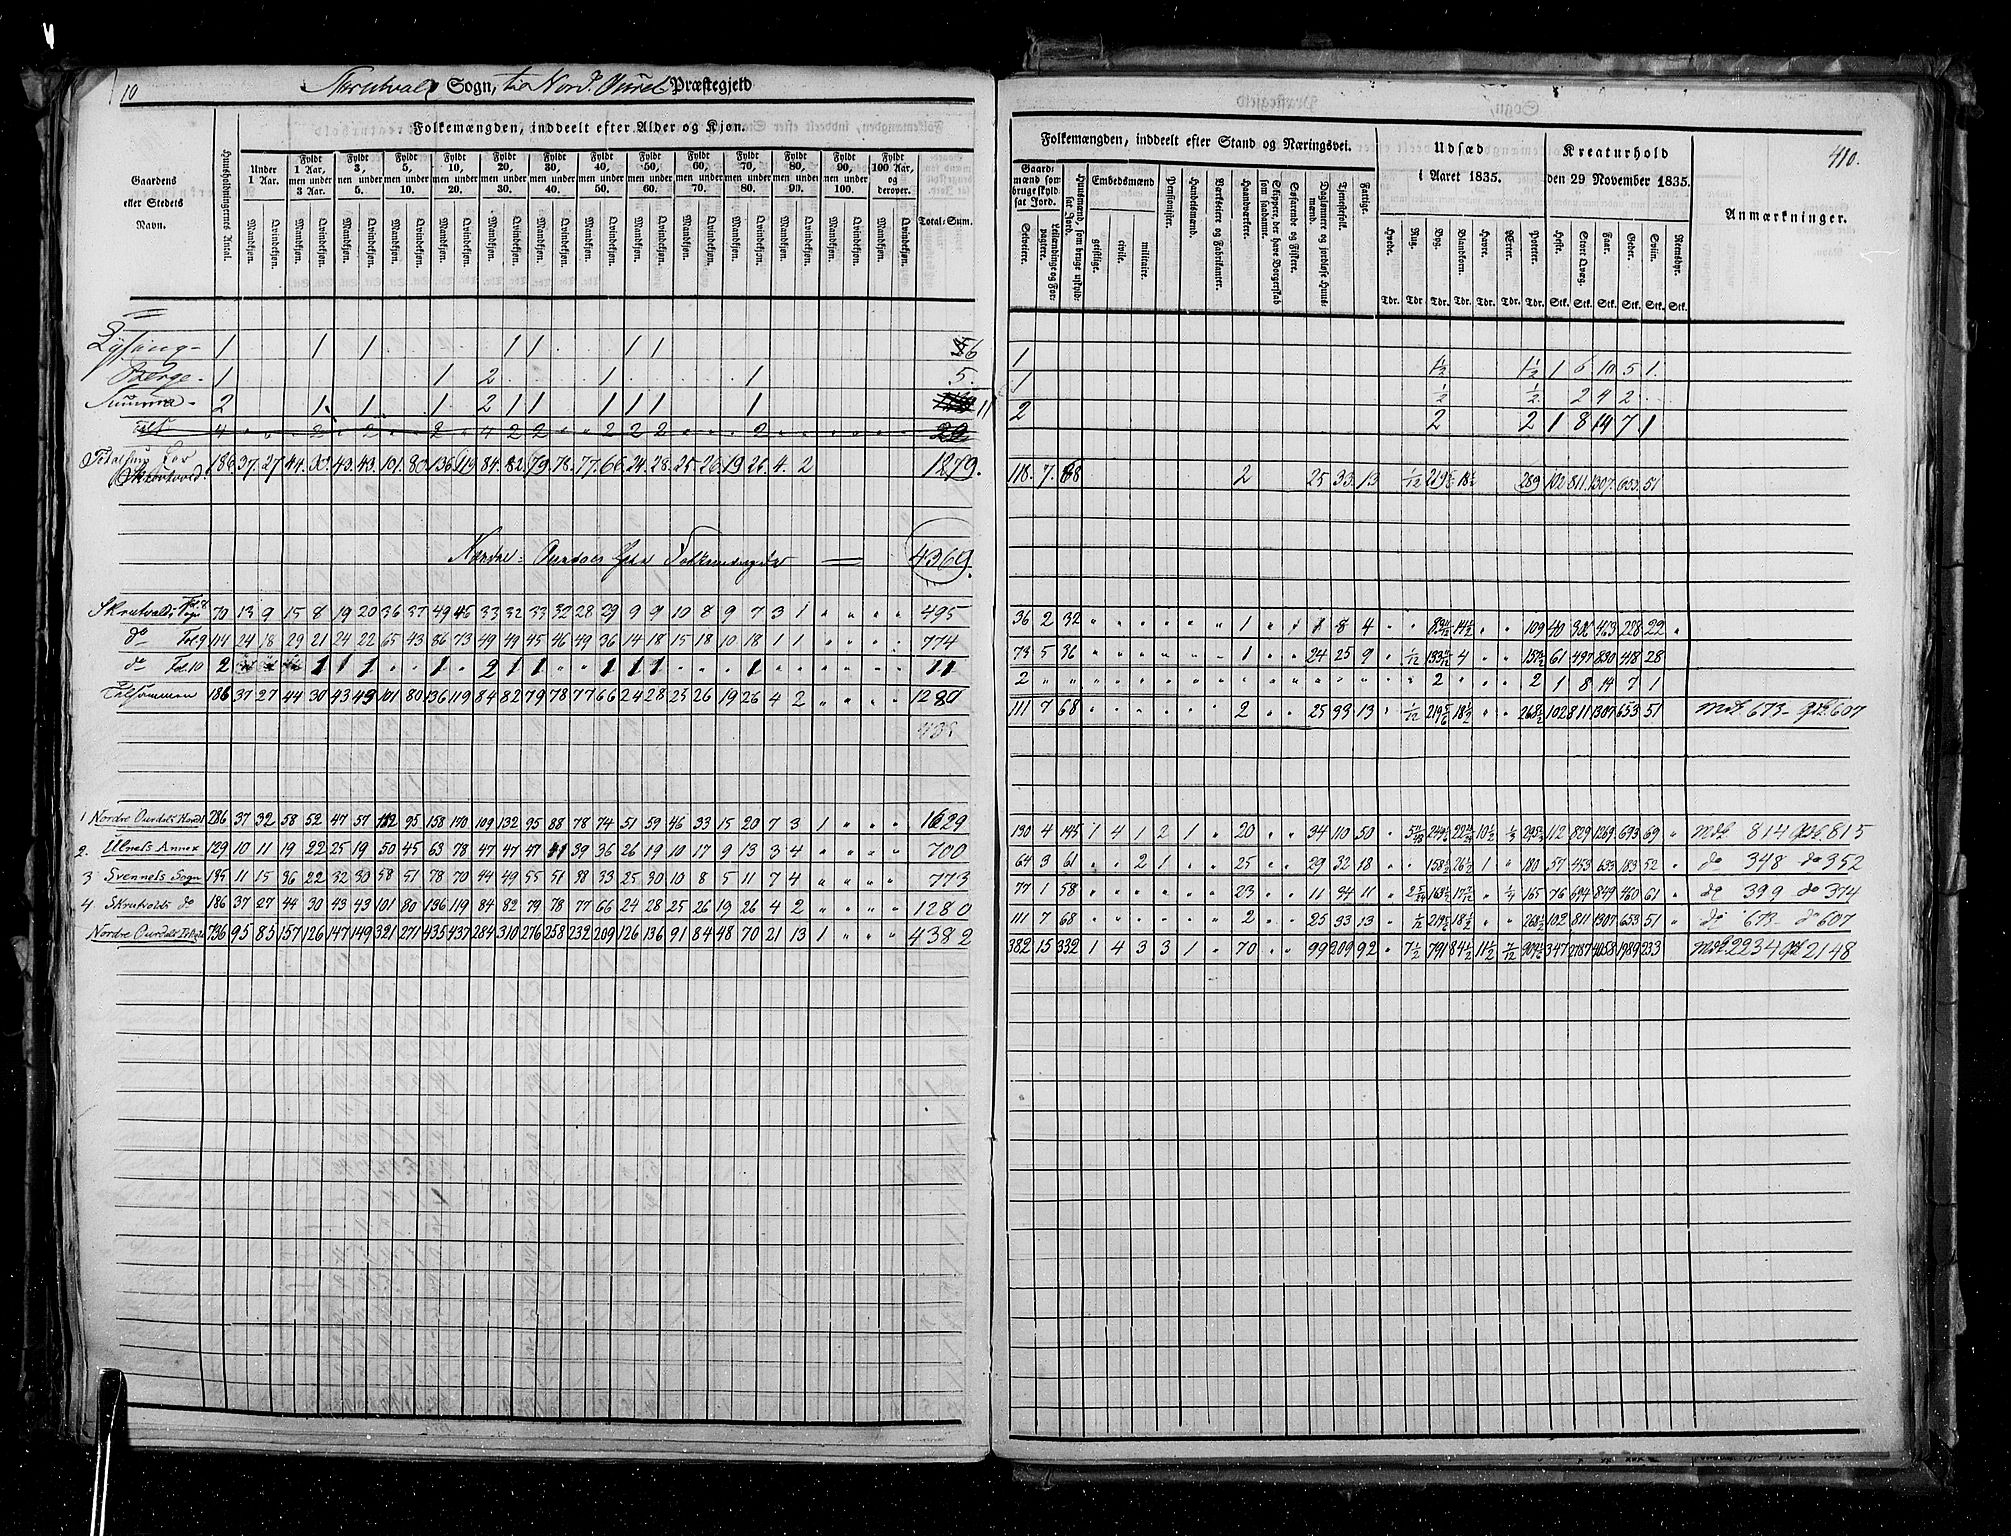 10
Skrutvals Sogn, til Nord. Aurdal Præstegjeld
Folkemængden, inddeelt efter Alder og Kjøn.
Gaardens eller Stedets Navn.
Huusholdningernes Antal.
Under 1 Aar.
Fyldt 1 Aar, men under 3 Aar.
Fyldt 3, men under 5.
Fyldt 5, men under 10.
Fyldt 10, men under 20.
Fyldt 20, men under 30.
Fyldt 30, men under 40.
Fyldt 40, men under 50.
Fyldt 50, men under 60.
Fyldt 60, men under 70.
Fyldt 70, men under 80.
Fyldt 80, men under 90.
Fyldt 90, men under 100.
Fyldt 100 Aar, og derover.
Mandkjøn. Qvindekjøn.
Total-Sum.
Lysing - 1 1 1 1 1 1 1 6
Berge - 1 1 2 1 1 5.
Summa - 2 1 1 1 2 1 1 1 1 1 1 11
4 2 2 2 4 2 2 2 2 2 2 22
Skrutvold. 186 37 27 44 30. 43. 43. 101 80 136 119 84. 82. 79. 78. 77. 66. 24. 28. 25. 26 19 26. 4. 2 1279.
Nordre Ourdals Folkemængde = 4369.
Skrutvalds Sogn 70 13 9 15 8 19 20 36 37 49 45 33 32 33 32 28 29 9 9 10 8 9 7 3 1 " " " " 495
do Fol. 9 114 24 18 29 21 24 22 65 43 86 73 49 49 45 46 49 36 14 18 15 18 10 18 1 1 " " " " 774
do Fol. 10 2 1 1 1 " " 1 " 2 1 1 " " 1 1 1 " " " 1 " " " " " " 11
Tilsammen 186 37 27 44 30 43 43 101 80 136 119 84 82 79 78 77 66 24 28 25 26 19 26 4 2 " " " " 1280
1 Nordre Ourdals Hovds 286 37 32 58 52 47 57 112 95 158 170 109 132 95 88 78 74 51 59 46 33 15 20 7 3 1 " " " 1629
2. Ulnæs Annex 129 10 11 19 22 25 19 50 45 63 78 47 47 47 41 39 36 26 19 10 17 9 13 3 4 " " " " 700
3 Svennæs Sogn 135 11 15 36 22 32 30 58 51 78 70 44 49 55 51 38 33 25 30 10 8 5 11 7 4 " " " " 773
4. Skrutvolds do 186 37 27 44 30 43 43 101 80 136 119 84 82 79 78 77 66 24 28 25 26 19 26 4 2 " " " " 1280
Nordre Ourdals 736 95 85 157 126 147 149 321 271 435 437 284 310 276 258 232 209 126 136 91 84 48 70 21 13 1 " " " 4382
410.
Folkemængden, inddeelt efter Stand og Næringsvei.
Udsæd i Aaret 1835.
Kreaturhold den 29 November 1835.
Anmærkninger.
Gaardmænd som bruge skyldsat Jord.
Selveiere.
Leilændinge og Forpagtere.
Huusmænd, som bruge uskyldsat Jord.
Embedsmænd
geistlige. civile. militaire.
Pensionister.
Handelsmænd.
Værkseiere og Fabrikanter.
Haandværkere.
Skippere, der have Borgerskab som saadanne.
Søfarende og Fiskere.
Dagleiere og jordløse Huusmænd.
Tjenestefolk.
Fattige.
Hvede. Rug. Byg. Blandkorn. Havre. Erter. Poteter.
Heste. Stort Qvæg. Faar. Geder. Sviin. Rensdyr.
Tdr. Tdr. Tdr. Tdr. Tdr. Tdr. Tdr. Stk. Stk. Stk. Stk. Stk. Stk.
1 1½ 1½ 1 6 10 5 1.
1 ½ ½ 2 4 2
2 2 2 1 8 14 7 1
118. 7. 68 2 25 33. 13 1/12 18½ 289 102 811. 1307. 653. 51
36 2 32 " " " " " " 1 " 1 8 4 " " 14½ " " 109 40 306 463 228 22 "
73 5 36 " " " " " " 1 " " 24 25 9 " 1/12 4 " " 157½ 61 497 830 418 28
2 " " " " " " " " " " " " " " " " 2 " " " 2 1 8 14 7 1
111 7 68 2 " " 25 33 13 " 1/12 219 5/6 18½ " " 268½ 102 811 1307 653 51 Mdk. 673 - Qdk. 607
130 4 145 1 4 1 2 1 " 20 " " 34 110 50 " 10½ 112 829 1269 693 69 " Mdk 814 Qdk 815
64 3 61 " " 2 1 " " 25 " " 29 32 18 " " 158½ 26½ 1 " 180 57 453 633 183 52 " do 348 do 352
77 1 58 " " " " " " 23 " " 11 34 11 " " 165 76 694 849 460 61 " do 399 do 374
111 7 68 " " " " " " 2 " " 25 33 13 " 1/12 18½ " " 268½ 102 811 1307 653 51 " do 673 do 607
382 15 332 1 4 3 3 1 " 70 " " 99 209 92 " 7½ 791 84½ 11½ 7/12 347 2787 4058 1989 233 Mdk 2234 Qdk 2148